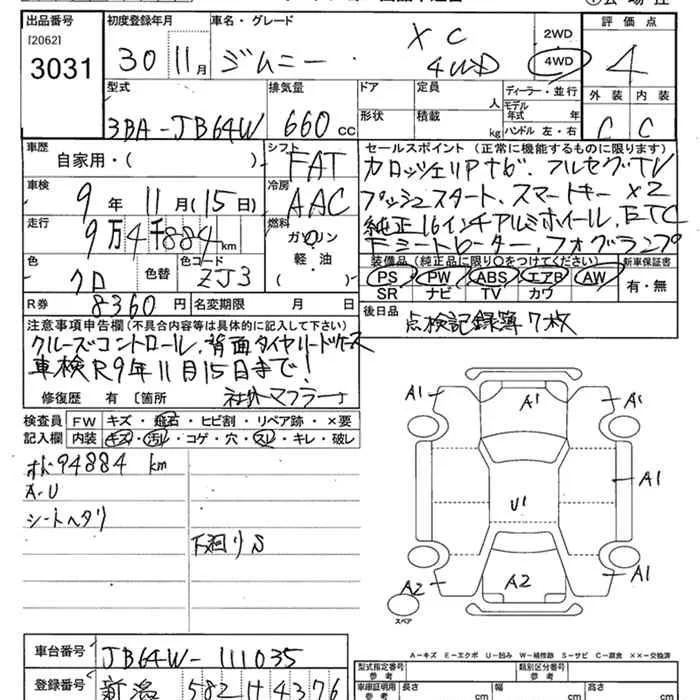 出品番号
[2062]
3031
初度登録年月
30 11月
車名・グレード
ジムニー・
XC
4WD
2WD
4WD
評価点
4
外装 内装
C C
型式
3BA-JB64W
排気量
660 CC
ドア
形状
定員
人
積載
kg
ディーラー・並行
モデル
年式 年
ハンドル 左・右
車歴
自家用・( )
シフト
FAT
セールスポイント (正常に機能するものに限ります)
カロッツェリアナビ、フルセグTV
プッシュスタート、スマートキー×2
純正16インチアルミホイール、ETC
シートヒーター、フォグランプ
車検
9年11月(15日)
冷房
AAC
走行
9万4千884km
燃料
ガソリン
軽・油
( )
色
クロ
色替
色コード
ZJ3
装備品(純正品に限り○をつけてください)
PS PW ABS エアB AW
SR ナビ TV カワ
新車保証書
有・無
R券
8360円
名変期限 月 日
後日品
点検記録簿7枚
注意事項申告欄(不具合内容等は具体的に記入して下さい)
クルーズコントロール、背面タイヤハードケース
車検R9年11月15日まで!
修復歴 有 〔箇所
社外マフラー
検査員
記入欄
FW キズ・飛石・ヒビ割・リペア跡・×要
内装 キズ・汚レ・コゲ・穴・スレ・キレ・破レ
94884 km
A-U
シートヘタリ
下廻りS
A1 A1 A1
A1
U1
A2 A2 A1
スペア
A－キズ E－エクボ U－凹み W－補修跡 S－サビ C－腐食 ××－交換済
車台番号
JB64W-111035
登録番号
新潟 582 4376
型式指定番号
参考
類別区分番号
参考
車庫証明用
参考
長さ
cm
幅
cm
高さ
cm